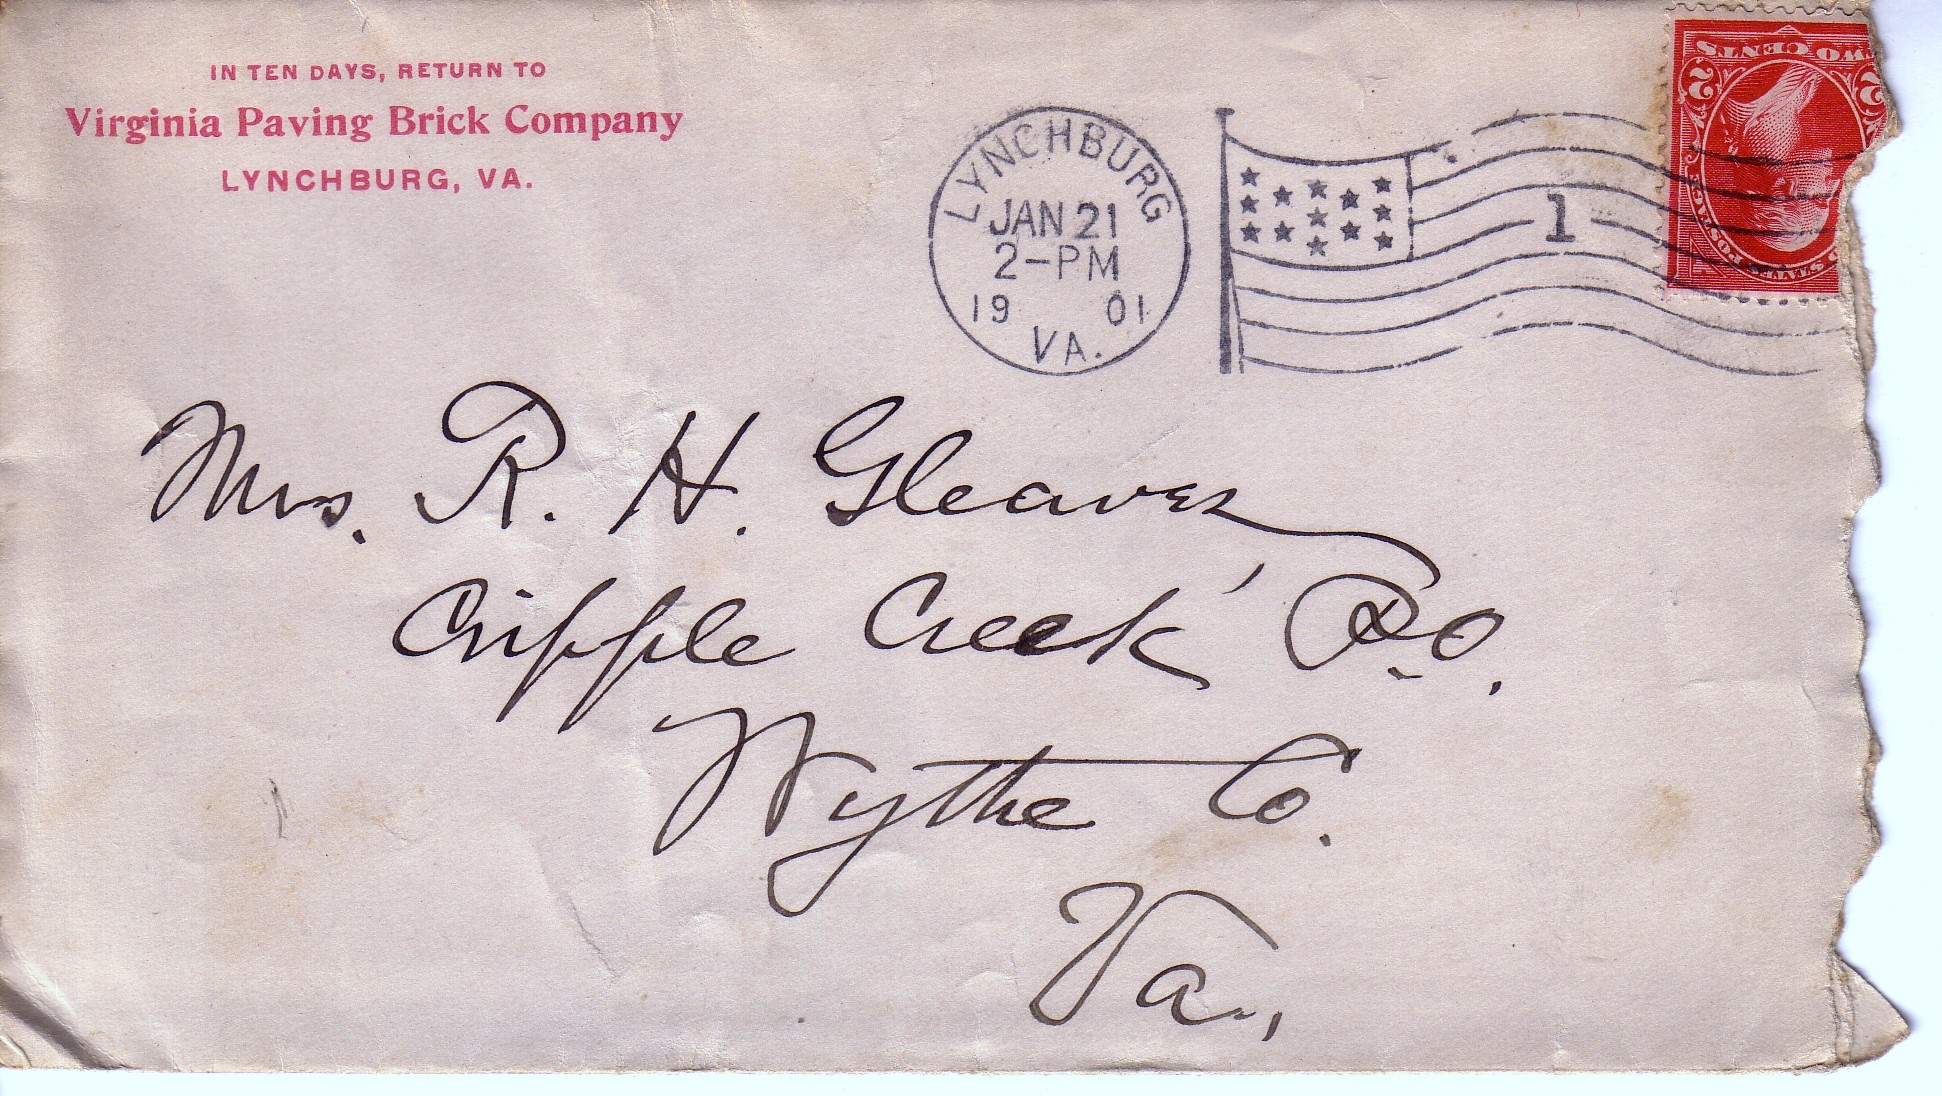 IN TEN DAYS, RETURN TO
Virginia Paving Brick Company
LYNCHBURG, VA.
LYNCHBURG
JAN 21
2-PM
19 01
VA.
1
TWO CENTS
2 2
Mrs. R. H. Gleaves
Cripple Creek P.O.
Wythe Co.
Va.,